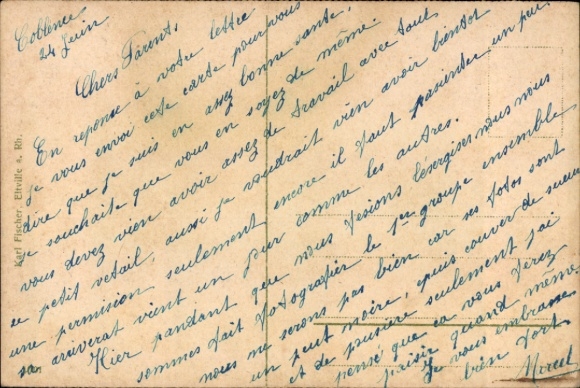 Coblence
24 Juin
Chers Parents,
En reponse à votre lettre
je vous envoi cete carte pour vous
dire que je suis en assez bonne sante,
je souhaite que vous en soyez de même.
vous devez vien avoir assez de travail avec tout
ce petit vetail, aussi je voudrait vien avoir bientot
une permision seulement encore il vaut pasienter un peu
sa arriverat vient un jour comme les autres.
Hier pandant que nous fesions nous nous
sommes fait fotografier le 1er groupe ensemble
nous ne serons pas bien car ses fotos sont
un peut noire, epuis couver de sueur
et de pusière seulement j'ai
pensé que ca vous ferez
plaisir quand même
Je vous embrasse
bien fort.
Marcel
Karl Fischer, Eltville a. Rh.